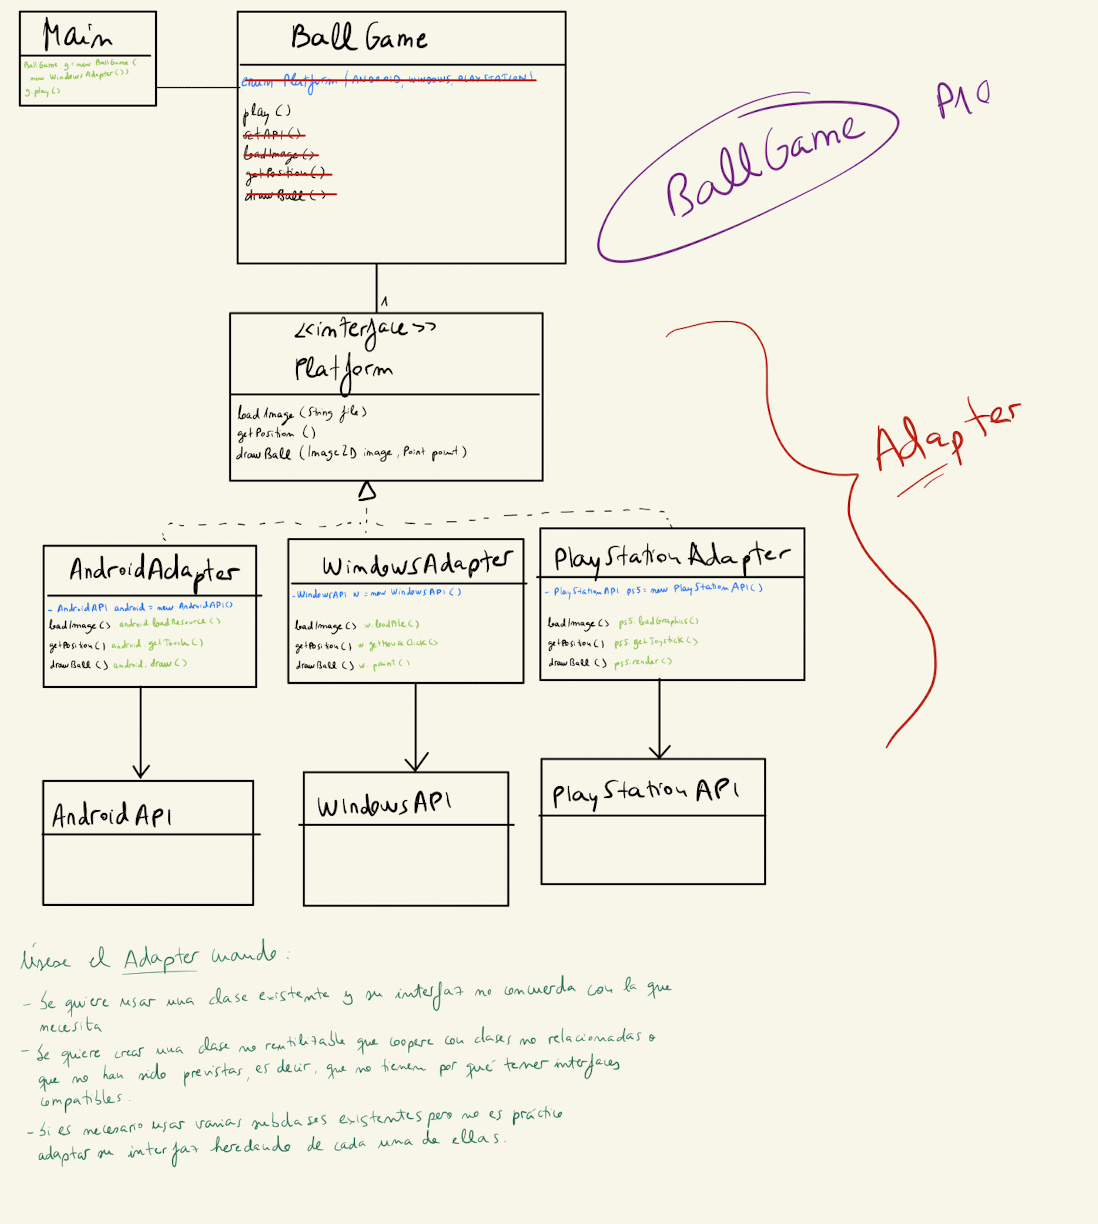 Main
BallGame g = new BallGame (
new WindowsAdapter())
g.play()
Ball Game
enum Platform {ANDROID, WINDOWS, PLAYSTATION}
play ()
setAPI ()
loadImage ()
getPosition ()
drawBall ()
BallGame
P10
1
<<interface>>
Platform
loadImage (String file)
getPosition ()
drawBall (Image2D image, Point point)
Adapter
AndroidAdapter
- AndroidAPI android = new AndroidAPI()
loadImage () android.loadResource ()
getPosition() android.getTouch ()
drawBall () android.draw ()
WindowsAdapter
- WindowsAPI w = new WindowsAPI ()
loadImage () w.loadFile ()
getPosition() w.getMouseClick ()
drawBall () w.paint ()
PlayStation Adapter
- PlayStationAPI ps5 = new PlayStationAPI()
loadImage () ps5.loadGraphics()
getPosition() ps5.getJoystick ()
drawBall () ps5.render ()
AndroidAPI
WindowsAPI
PlayStation API
Úsese el Adapter cuando:
- Se quiere usar una clase existente y su interfaz no concuerda con la que
necesita
- Se quiere crear una clase no reutilizable que coopere con clases no relacionadas o
que no han sido previstas, es decir, que no tienen por qué tener interfaces
compatibles.
- Si es necesario usar varias subclases existentes pero no es práctico
adaptar su interfaz heredando de cada una de ellas.